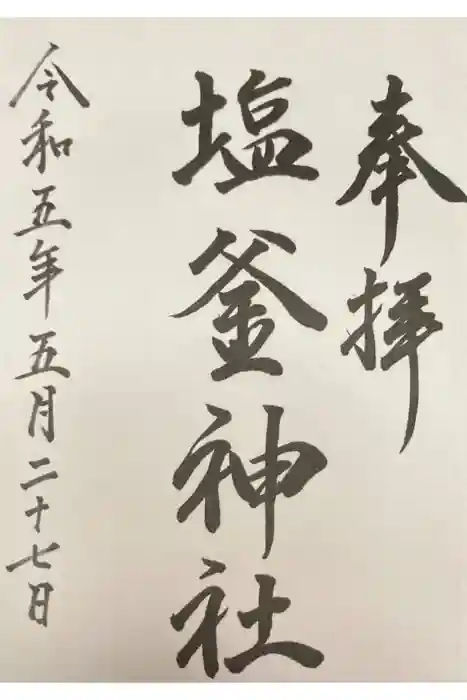 奉拝
塩釜神社
令和五年五月二十七日